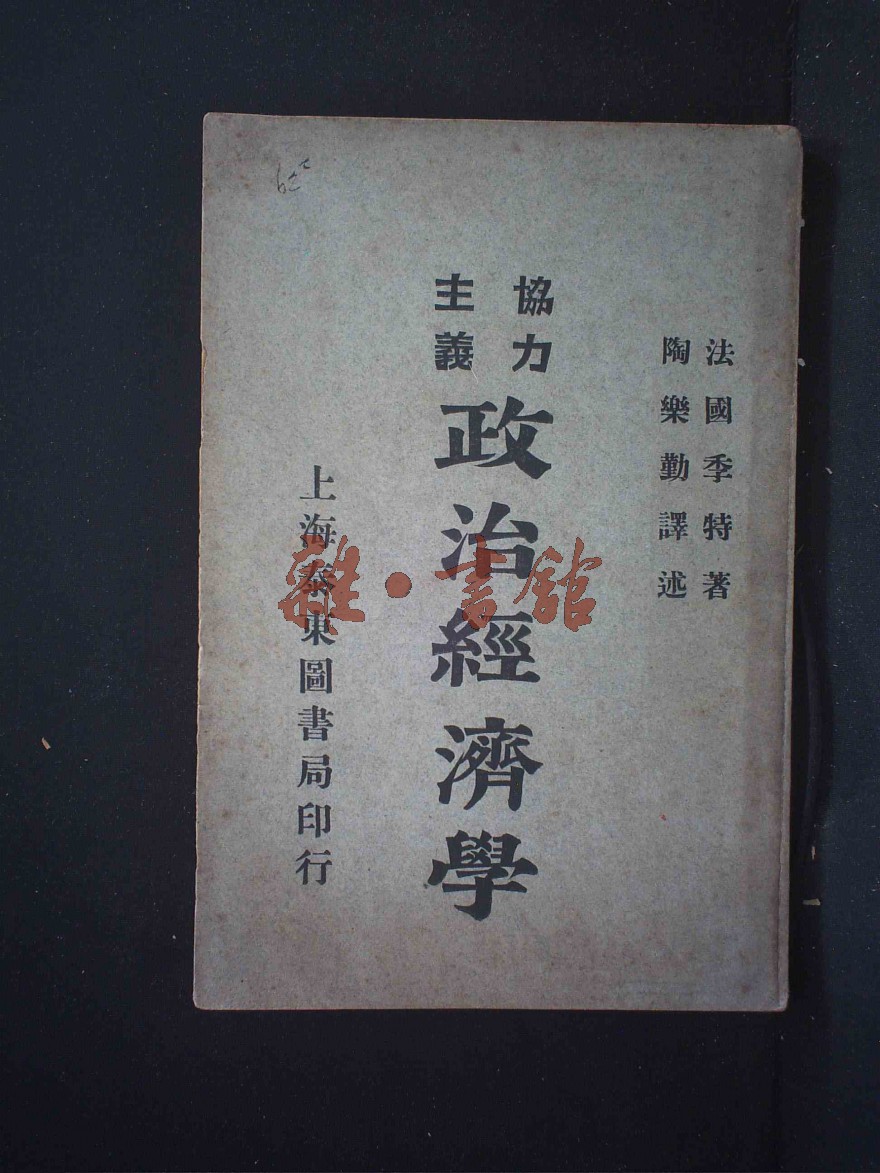 法國季特著
陶樂勤譯述
協力
主義
政治經濟學
上海泰東圖書局印行
雜·書館